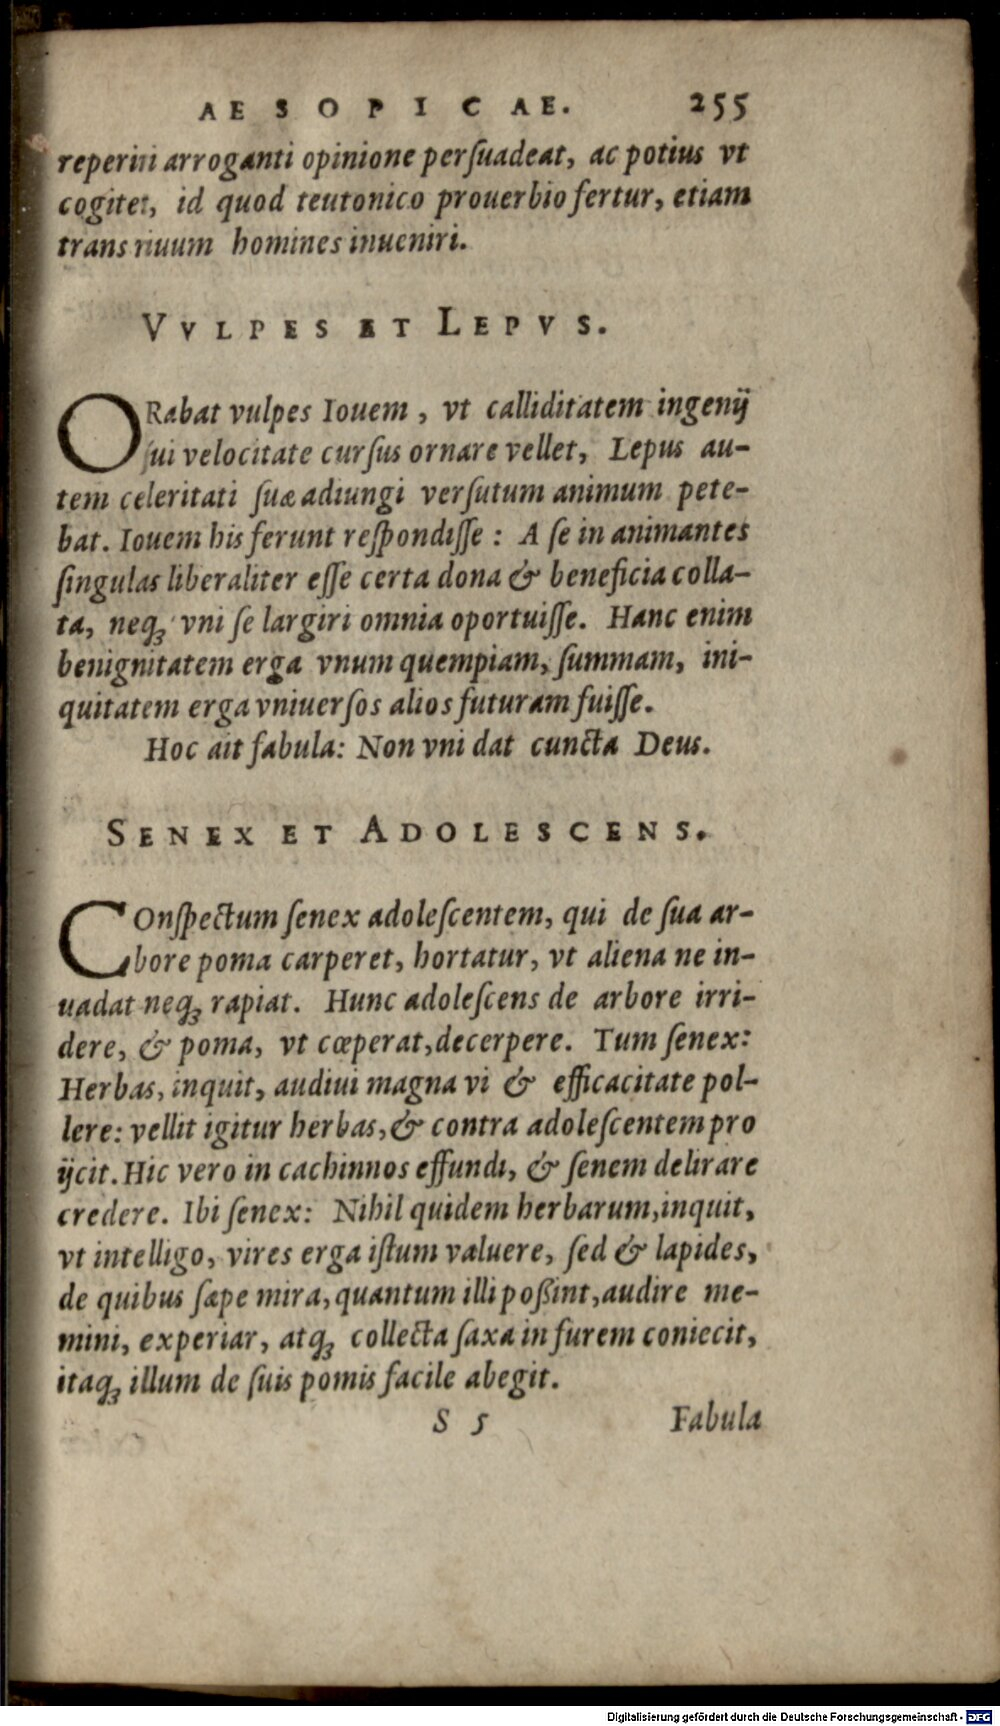 AESOPICAE. 255
reperiri arroganti opinione perſuadeat, ac potius vt
cogitet, id quod teutonico prouerbio fertur, etiam
trans riuum homines inueniri.
VVLPES ET LEPVS.
ORabat vulpes Iouem, vt calliditatem ingenij
ſui velocitate curſus ornare vellet, Lepus au-
tem celeritati ſuæ adiungi verſutum animum pete-
bat. Iouem his ferunt reſpondiſſe: A ſe in animantes
ſingulas liberaliter eſſe certa dona & beneficia colla-
ta, neqꝫ vni ſe largiri omnia oportuiſſe. Hanc enim
benignitatem erga vnum quempiam, ſummam, ini-
quitatem erga vniuerſos alios futuram fuiſſe.
Hoc ait fabula: Non vni dat cuncta Deus.
SENEX ET ADOLESCENS.
COnſpectum ſenex adoleſcentem, qui de ſua ar-
bore poma carperet, hortatur, vt aliena ne in-
uadat neqꝫ rapiat. Hunc adoleſcens de arbore irri-
dere, & poma, vt cœperat, decerpere. Tum ſenex:
Herbas, inquit, audiui magna vi & efficacitate pol-
lere: vellit igitur herbas, & contra adoleſcentem pro
ijcit. Hic vero in cachinnos effundi, & ſenem delirare
credere. Ibi ſenex: Nihil quidem herbarum, inquit,
vt intelligo, vires erga iſtum valuere, ſed & lapides,
de quibus ſæpe mira, quantum illi poßint, audire me-
mini, experiar, atqꝫ collecta ſaxa in furem coniecit,
itaqꝫ illum de ſuis pomis facile abegit.
S 5 Fabula
Digitalisierung gefördert durch die Deutsche Forschungsgemeinschaft - DFG